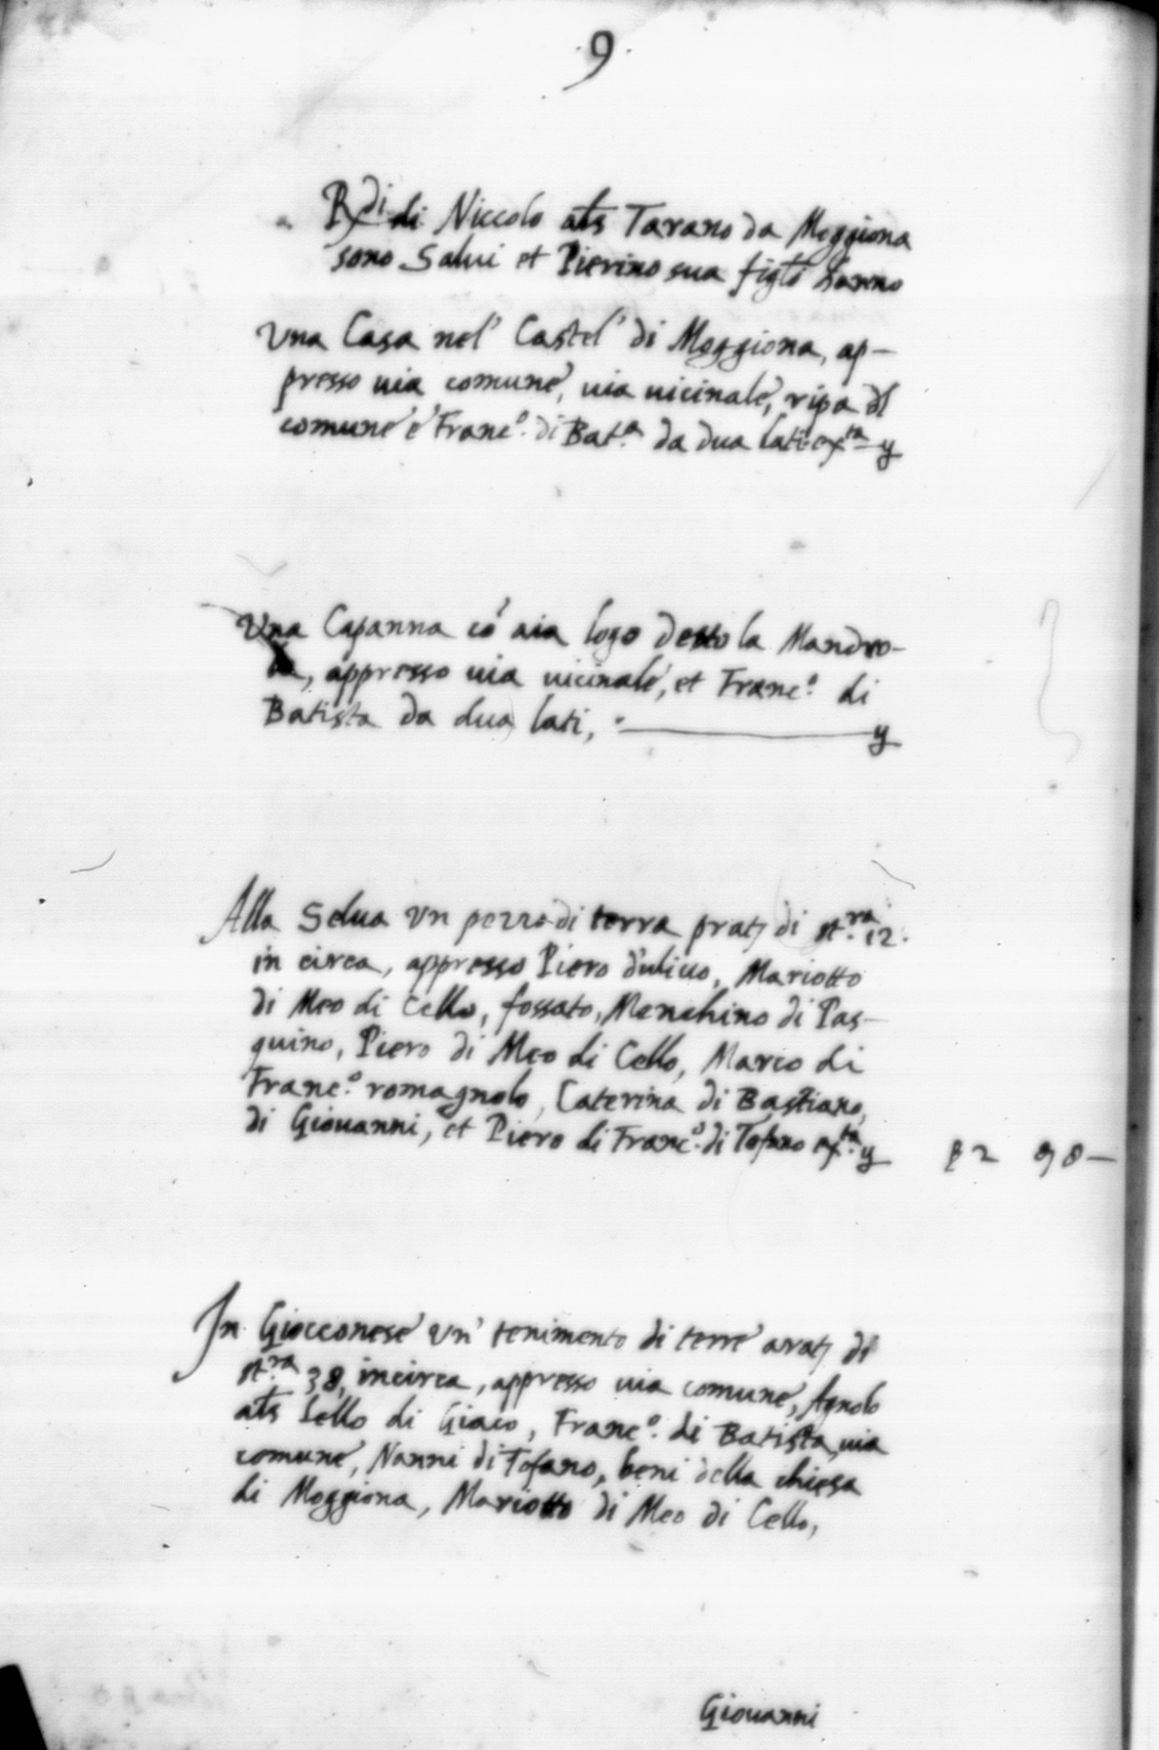 9
Rdi di Niccolo als Tarano da Moggiona
sono Salui et Pierino sua figli hanno
Una Casa nel' Castel' di Moggiona, ap-
presso uia comune, uia uicinale, ripa dl
comune e Franc.o di Bat.a da dua lati
Una Capanna cō aia logo detto la Mandro-
la, appresso uia uicinale, et Franc.o di
Batista da dua lati,
Alla Selua Un pezzo di terra prat; di st.ra 12.
in circa, appresso Piero d'uliuo, Mariotto
di Meo di Cello, fossato, Menchino di Pas-
quino, Piero di Meo di Cello, Marco di
Franc.o romagnolo, Caterina di Bastiano,
di Giouanni, et Piero di Franc.o di Tofano
In Giocconese un' tenimento di terre arat; di
st.ra 38, incirca, appresso uia comune, Agnolo
als Lello di Giaco, Franc.o di Batista, uia
comune, Nanni di Tofano, beni della chiesa
di Moggiona, Mariotto di Meo di Cello,
Giouanni